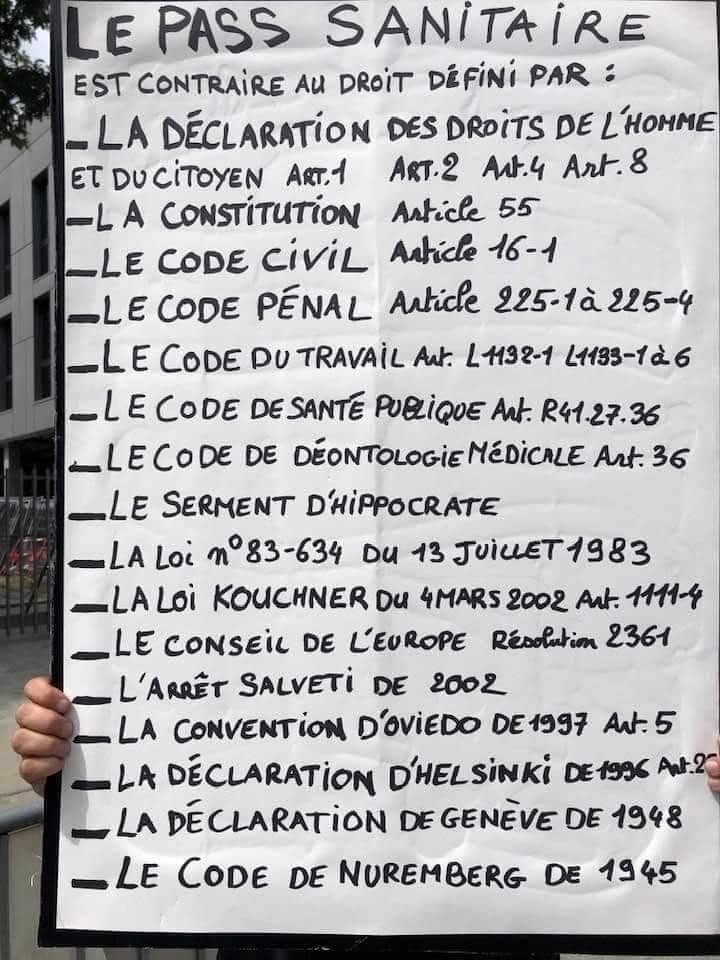 LE PASS SANITAIRE
EST CONTRAIRE AU DROIT DÉFINI PAR :
- LA DÉCLARATION DES DROITS DE L'HOMME
ET DU CITOYEN ART.1 ART.2 Art.4 Art.8
- LA CONSTITUTION Article 55
- LE CODE CIVIL Article 16-1
- LE CODE PÉNAL Article 225-1 à 225-4
- LE CODE DU TRAVAIL Art. L1132-1 L1133-1 à 6
- LE CODE DE SANTÉ PUBLIQUE Art. R41.27.36
- LE CODE DE DÉONTOLOGIE MÉDICALE Art. 36
- LE SERMENT D'HIPPOCRATE
- LA Loi n° 83-634 DU 13 JUILLET 1983
- LA Loi KOUCHNER DU 4 MARS 2002 Art. 1111-4
- LE CONSEIL DE L'EUROPE Résolution 2361
- L'ARRÊT SALVETI DE 2002
- LA CONVENTION D'OVIEDO DE 1997 Art. 5
- LA DÉCLARATION D'HELSINKI DE 1996 Art.2
- LA DÉCLARATION DE GENÈVE DE 1948
- LE CODE DE NUREMBERG DE 1945